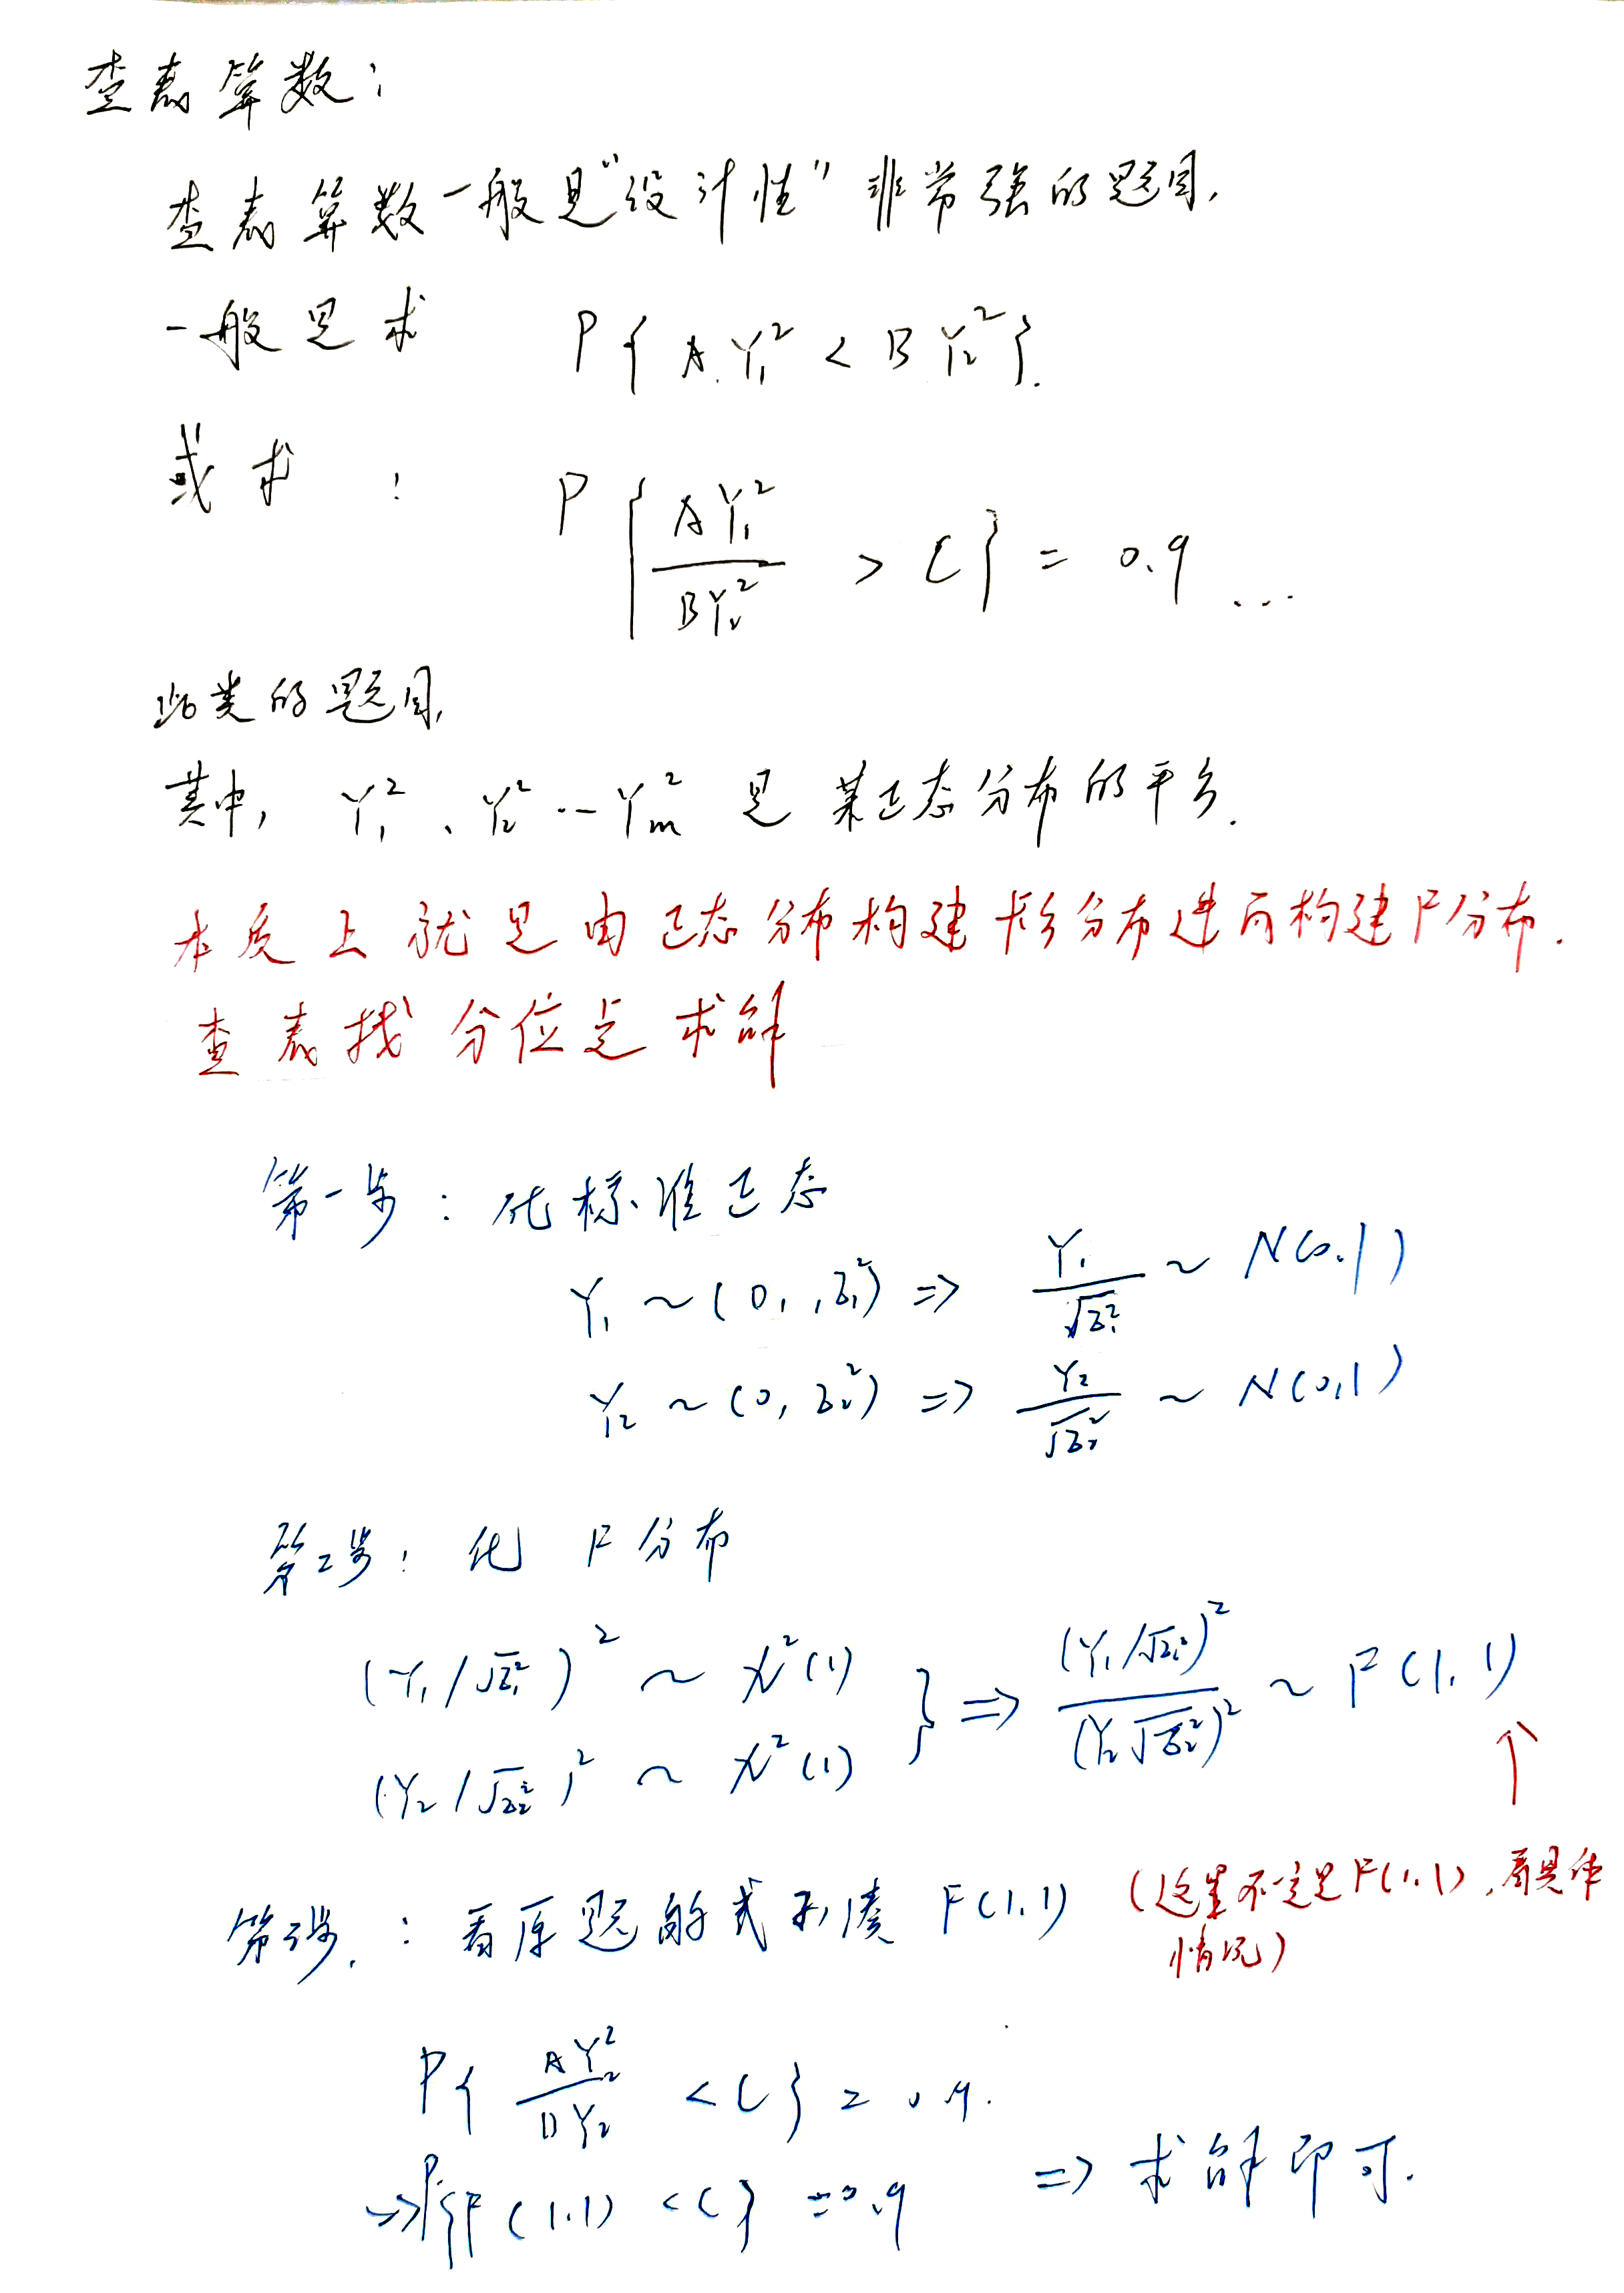 查表算数：
查表算数一般是“设计性”非常强的题目，
一般是求 P{AY₁² < BY₂²}.
或求： P{AY₁²/BY₂² > C} = 0.9 ...
此类的题目，
其中，Y₁²、Y₂² ... Yₘ² 是某正态分布的平方.
本质上就是由正态分布构建卡方分布进而构建F分布.
查表找分位点求解
第一步：化标准正态
Y₁ ~ (0, σ₁²) => Y₁/√σ₁² ~ N(0,1)
Y₂ ~ (0, σ₂²) => Y₂/√σ₂² ~ N(0,1)
第二步：化F分布
(Y₁/√σ₁²)² ~ χ²(1)
(Y₂/√σ₂²)² ~ χ²(1)
} => (Y₁/√σ₁²)²/(Y₂√σ₂²)² ~ F(1,1)
↑
第三步：看原题的式子凑F(1,1) (这里不一定是F(1,1)，看具体
情况)
P{AY₂²/BY₂ < C} = 0.9.
→ P{F(1,1) < C} = 0.9 => 求解即可.